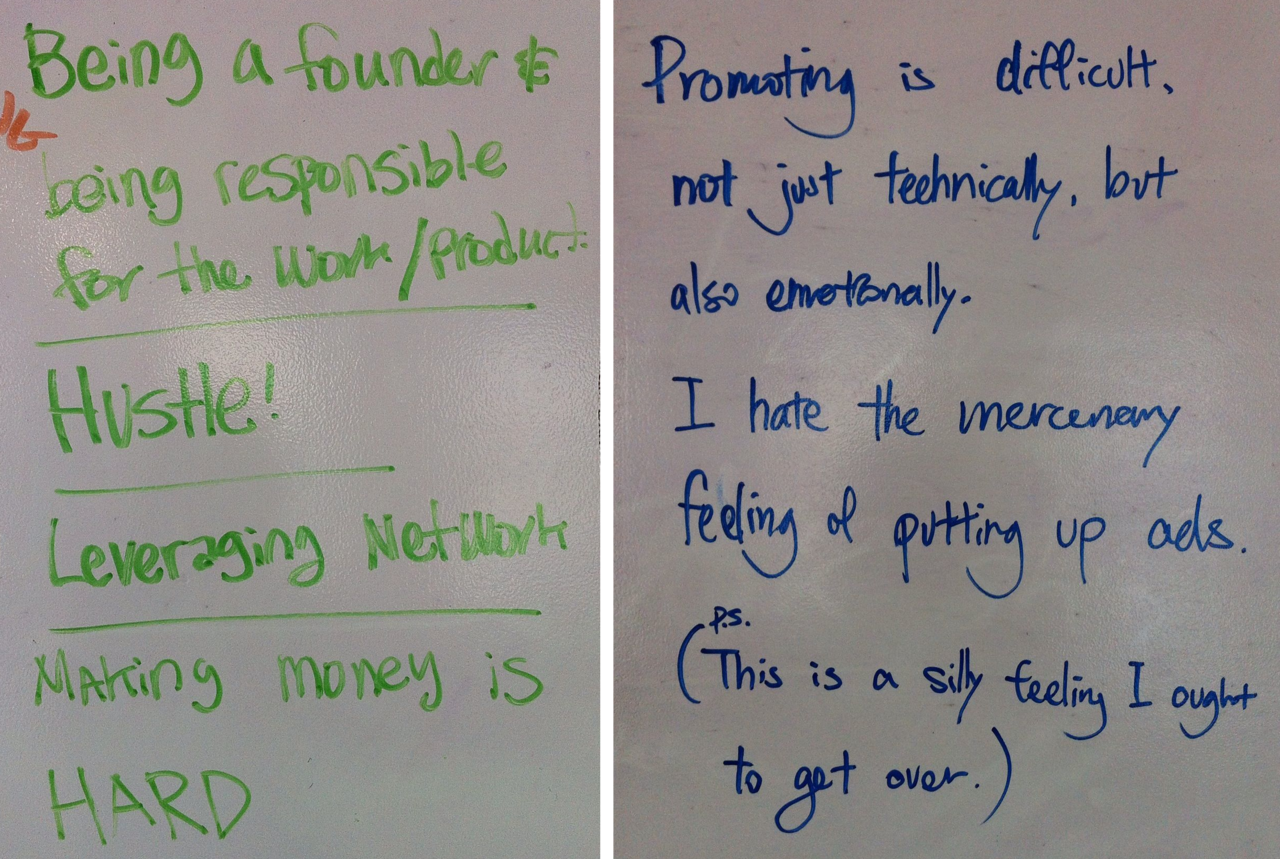 Being a founder &
being responsible
for the work/product.
Hustle!
Leveraging Network
Making money is
HARD
Promoting is difficult,
not just technically, but
also emotionally.
I hate the mercenary
feeling of putting up ads.
P.S.
(This is a silly feeling I ought
to get over.)